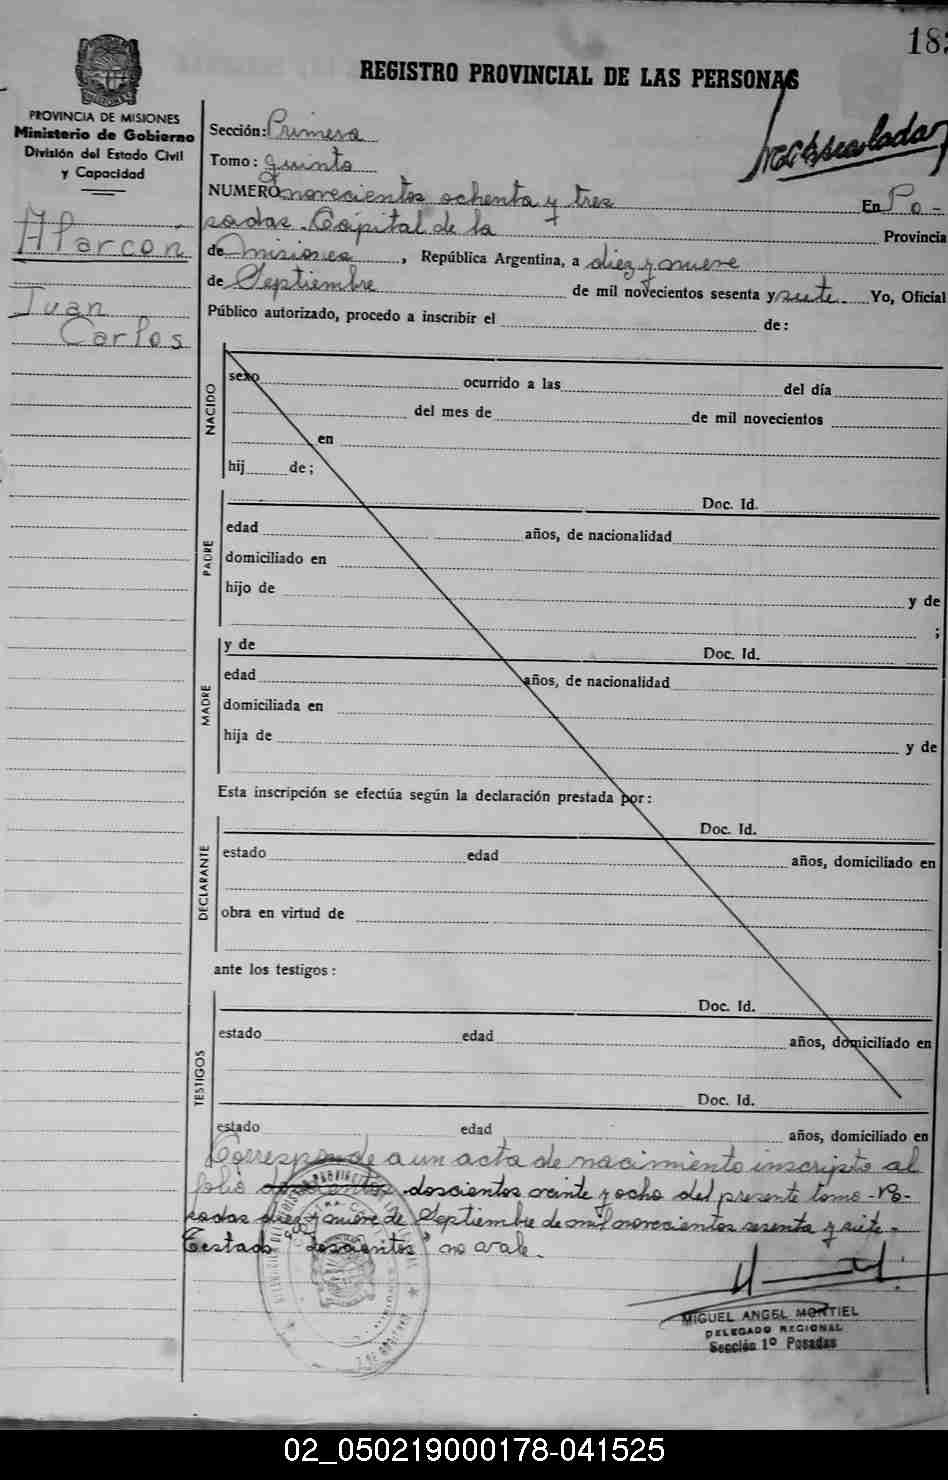 REGISTRO PROVINCIAL DE LAS PERSONAS
PROVINCIA DE MISIONES
Ministerio de Gobierno
División del Estado Civil
y Capacidad
Alarcon
Juan
Carlos
Sección: Primera
Tomo: quinto
NUMERO novecientos ochenta y tres En Po-
sadas. Capital de la Provincia
de Misiones, República Argentina, a diez y nueve
de Septiembre de mil novecientos sesenta y siete. Yo, Oficial
Público autorizado, procedo a inscribir el de:
NACIDO
sexo ocurrido a las del día
del mes de de mil novecientos
en
hij de;
PADRE
Doc. Id.
edad años, de nacionalidad
domiciliado en
hijo de y de
;
MADRE
y de Doc. Id.
edad años, de nacionalidad
domiciliada en
hija de y de
Esta inscripción se efectúa según la declaración prestada por:
DECLARANTE
Doc. Id.
estado edad años, domiciliado en
obra en virtud de
ante los testigos:
TESTIGOS
Doc. Id.
estado edad años, domiciliado en
Doc. Id.
estado edad años, domiciliado en
Corresponde a un acta de nacimiento inscripto al
folio doscientos veinte y ocho del presente tomo - Po-
sadas diez y nueve de Septiembre de mil novecientos sesenta y siete.
Testado "doscientos" no vale.
MIGUEL ANGEL MONTIEL
DELEGADO REGIONAL
Sección 1º Posadas
02_050219000178-041525